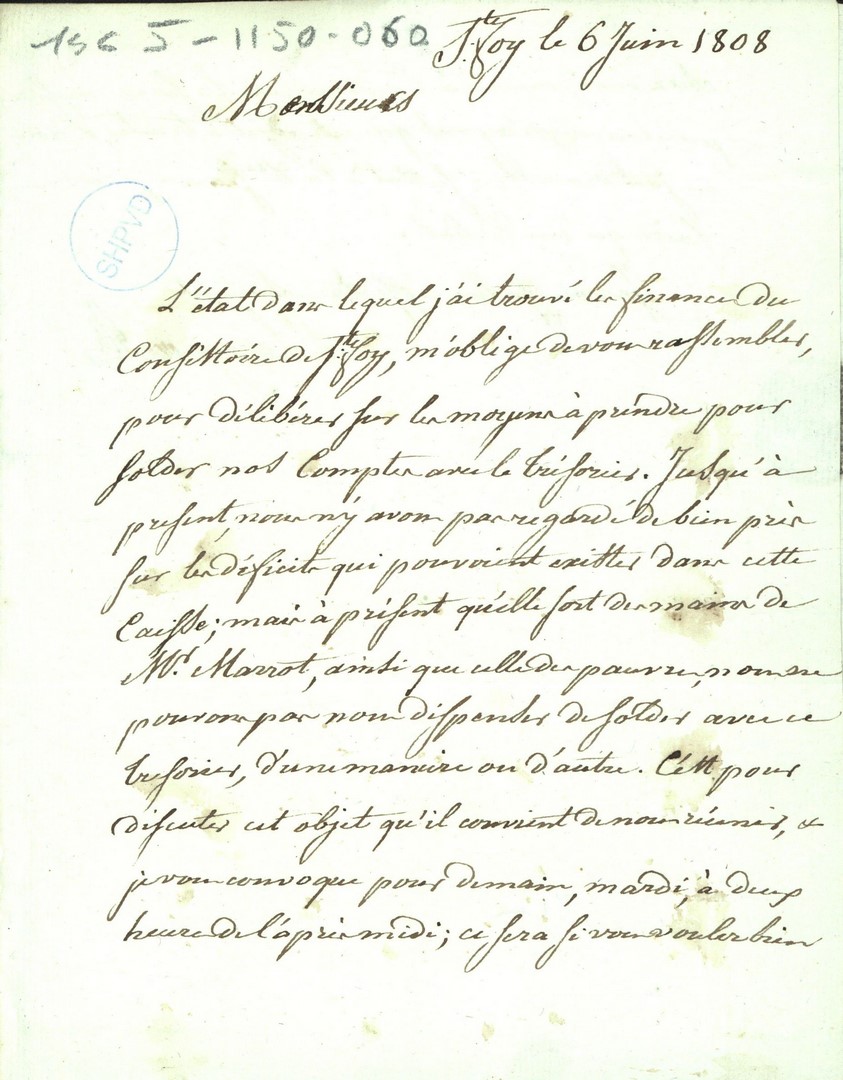 1sc J - 1150 - 060
Ste Foy le 6 Juin 1808
Messieurs
SHPVD
L'état dans lequel j'ai trouvé les finances du
Consistoire de Ste Foy, m'oblige de vous rassembler,
pour délibérer sur les moyens à prendre pour
solder nos Comptes avec le trésorier. Jusqu'à
present nous n'y avons pas regardé de bien près
sur les déficits qui pouvoient exister dans cette
Caisse; mais à présent qu'elle sort des mains de
Mr. Marrot, ainsi que celle des pauvres, nous ne
pouvons pas nous dispenser de solder avec ce
tresorier, d'une maniere ou d'autre. C'est pour
discuter cet objet qu'il convient de nous réunir, &
je vous convoque pour demain, mardi, à deux
heures de l'après midi; ce sera si vous voulez bien